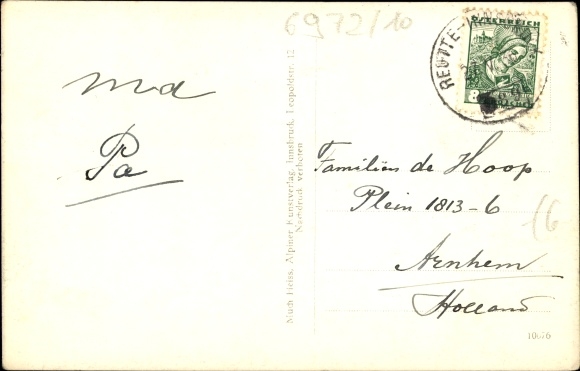 6972/10
ÖSTERREICH
REUTTE-
8
md
Pa
Much Heiss, Alpiner Kunstverlag, Innsbruck, Leopoldstr. 12
Nachdruck verboten
Familien de Hoop
Plein 1813-6
Arnhem
Holland
16
10676